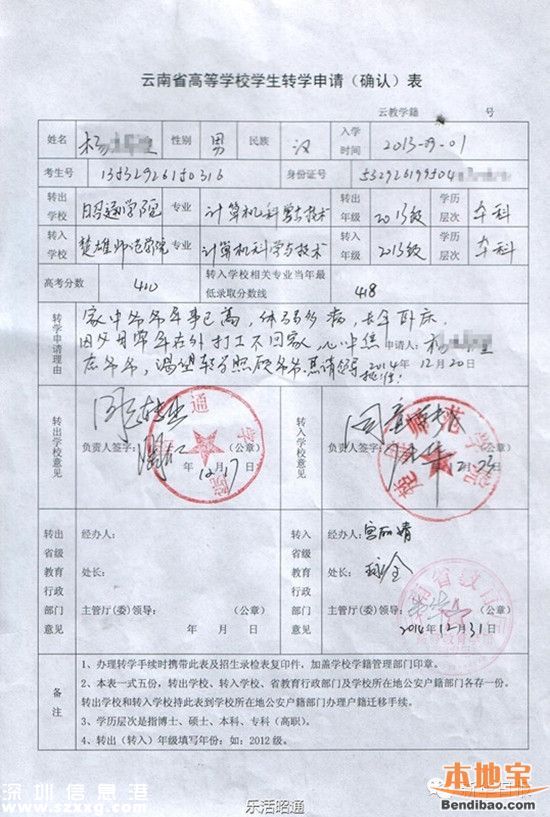 云南省高等学校学生转学申请（确认）表
云教学籍 号
姓名 杨 性别 男 民族 汉 入学时间 2013-09-01
考生号 13532926150316 身份证号 532926199504
转出学校 昭通学院 专业 计算机科学与技术 转出年级 2013级 学历层次 本科
转入学校 楚雄师范学院 专业 计算机科学与技术 转入年级 2013级 学历层次 本科
高考分数 410 转入学校相关专业当年最低录取分数线 418
转学申请理由
家中爷爷年事已高，体弱多病，长年卧床
因父母常年在外打工不回家，心中焦 申请人：杨
虑爷爷，渴望转学照顾爷爷。恳请领导批准！ 2014年12月20日
转出学校意见 同意转出 负责人签字： （公章）
年 12月17日
转入学校意见 同意 负责人签字： （公章）
12.23
转出省级教育行政部门意见
经办人：
处长：
主管厅(委)领导： （公章）
年 月 日
转入省级教育行政部门意见
经办人：
处长：
主管厅(委)领导： （公章）
2014年12月31日
备注
1、办理转学手续时携带此表及招生录检表复印件，加盖学校学籍管理部门印章。
2、本表一式五份，转出学校、转入学校、省教育行政部门及学校所在地公安户籍部门各存一份。
转出学校和转入学校持此表到学校所在地公安户籍部门办理户籍迁移手续。
3、学历层次是指博士、硕士、本科、专科（高职）。
4、转出（转入）年级填写年份：如：2012级。
深圳信息港
www.szxxg.com
乐活昭通
本地宝
Bendibao.com